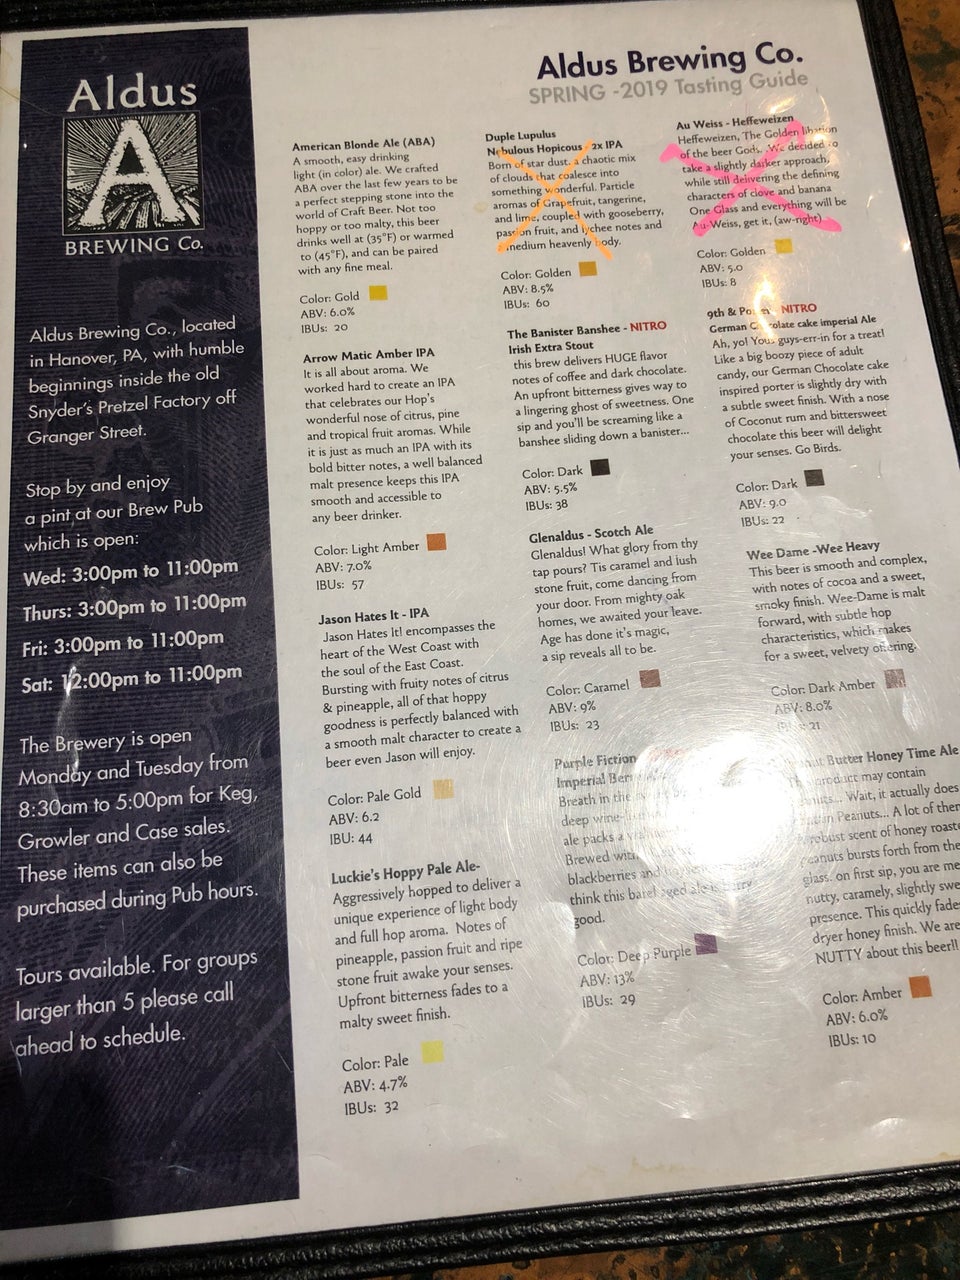 Aldus
A
BREWING Co.
Aldus Brewing Co., located
in Hanover, PA, with humble
beginnings inside the old
Snyder's Pretzel Factory off
Granger Street.
Stop by and enjoy
a pint at our Brew Pub
which is open:
Wed: 3:00pm to 11:00pm
Thurs: 3:00pm to 11:00pm
Fri: 3:00pm to 11:00pm
Sat: 12:00pm to 11:00pm
The Brewery is open
Monday and Tuesday from
8:30am to 5:00pm for Keg,
Growler and Case sales.
These items can also be
purchased during Pub hours.
Tours available. For groups
larger than 5 please call
ahead to schedule.
Aldus Brewing Co.
SPRING -2019 Tasting Guide
American Blonde Ale (ABA)
A smooth, easy drinking
light (in color) ale. We crafted
ABA over the last few years to be
a perfect stepping stone into the
world of Craft Beer. Not too
hoppy or too malty, this beer
drinks well at (35°F) or warmed
to (45°F), and can be paired
with any fine meal.
Color: Gold
ABV: 6.0%
IBUs: 20
Arrow Matic Amber IPA
It is all about aroma. We
worked hard to create an IPA
that celebrates our Hop's
wonderful nose of citrus, pine
and tropical fruit aromas. While
it is just as much an IPA with its
bold bitter notes, a well balanced
malt presence keeps this IPA
smooth and accessible to
any beer drinker.
Color: Light Amber
ABV: 7.0%
IBUs: 57
Jason Hates It - IPA
Jason Hates It! encompasses the
heart of the West Coast with
the soul of the East Coast.
Bursting with fruity notes of citrus
& pineapple, all of that hoppy
goodness is perfectly balanced with
a smooth malt character to create a
beer even Jason will enjoy.
Color: Pale Gold
ABV: 6.2
IBU: 44
Luckie's Hoppy Pale Ale-
Aggressively hopped to deliver a
unique experience of light body
and full hop aroma. Notes of
pineapple, passion fruit and ripe
stone fruit awake your senses.
Upfront bitterness fades to a
malty sweet finish.
Color: Pale
ABV: 4.7%
IBUs: 32
Duple Lupulus
Nebulous Hopicous 2x IPA
Born of star dust, a chaotic mix
of clouds that coalesce into
something wonderful. Particle
aromas of Grapefruit, tangerine,
and lime, coupled with gooseberry,
passion fruit, and lychee notes and
medium heavenly body.
Color: Golden
ABV: 8.5%
IBUs: 60
The Banister Banshee - NITRO
Irish Extra Stout
this brew delivers HUGE flavor
notes of coffee and dark chocolate.
An upfront bitterness gives way to
a lingering ghost of sweetness. One
sip and you'll be screaming like a
banshee sliding down a banister...
Color: Dark
ABV: 5.5%
IBUs: 38
Glenaldus - Scotch Ale
Glenaldus! What glory from thy
tap pours? Tis caramel and lush
stone fruit, come dancing from
your door. From mighty oak
homes, we awaited your leave.
Age has done it's magic,
a sip reveals all to be.
Color: Caramel
ABV: 9%
IBUs: 23
Purple Fiction
Imperial
Breath in the
deep
ale packs a
Brewed
blackberries and
think this barrel aged ale is berry
good.
Color: Deep Purple
ABV: 13%
IBUs: 29
Au Weiss - Heffeweizen
Heffeweizen, The Golden libation
of the beer Gods. We decided to
take a slightly darker approach,
while still delivering the defining
characters of clove and banana
One Glass and everything will be
Au-Weiss, get it, (aw-right)
Color: Golden
ABV: 5.0
IBUs: 8
9th & NITRO
German Chocolate cake imperial Ale
Ah, yo! Yous guys-err-in for a treat!
Like a big boozy piece of adult
candy, our German Chocolate cake
inspired porter is slightly dry with
a subtle sweet finish. With a nose
of Coconut rum and bittersweet
chocolate this beer will delight
your senses. Go Birds.
Color: Dark
ABV: 9.0
IBUs: 22
Wee Dame -Wee Heavy
This beer is smooth and complex,
with notes of cocoa and a sweet,
smoky finish. Wee-Dame is malt
forward, with subtle hop
characteristics, which makes
for a sweet, velvety offering.
Color: Dark Amber
ABV: 8.0%
21
Butter Honey Time Ale
product may contain
Wait, it actually does
Peanuts... A lot of them
robust scent of honey
bursts forth from the
glass. on first sip, you are
nutty, caramely, slightly
presence. This quickly
dryer honey finish. We are
NUTTY about this beer!!
Color: Amber
ABV: 6.0%
IBUs: 10